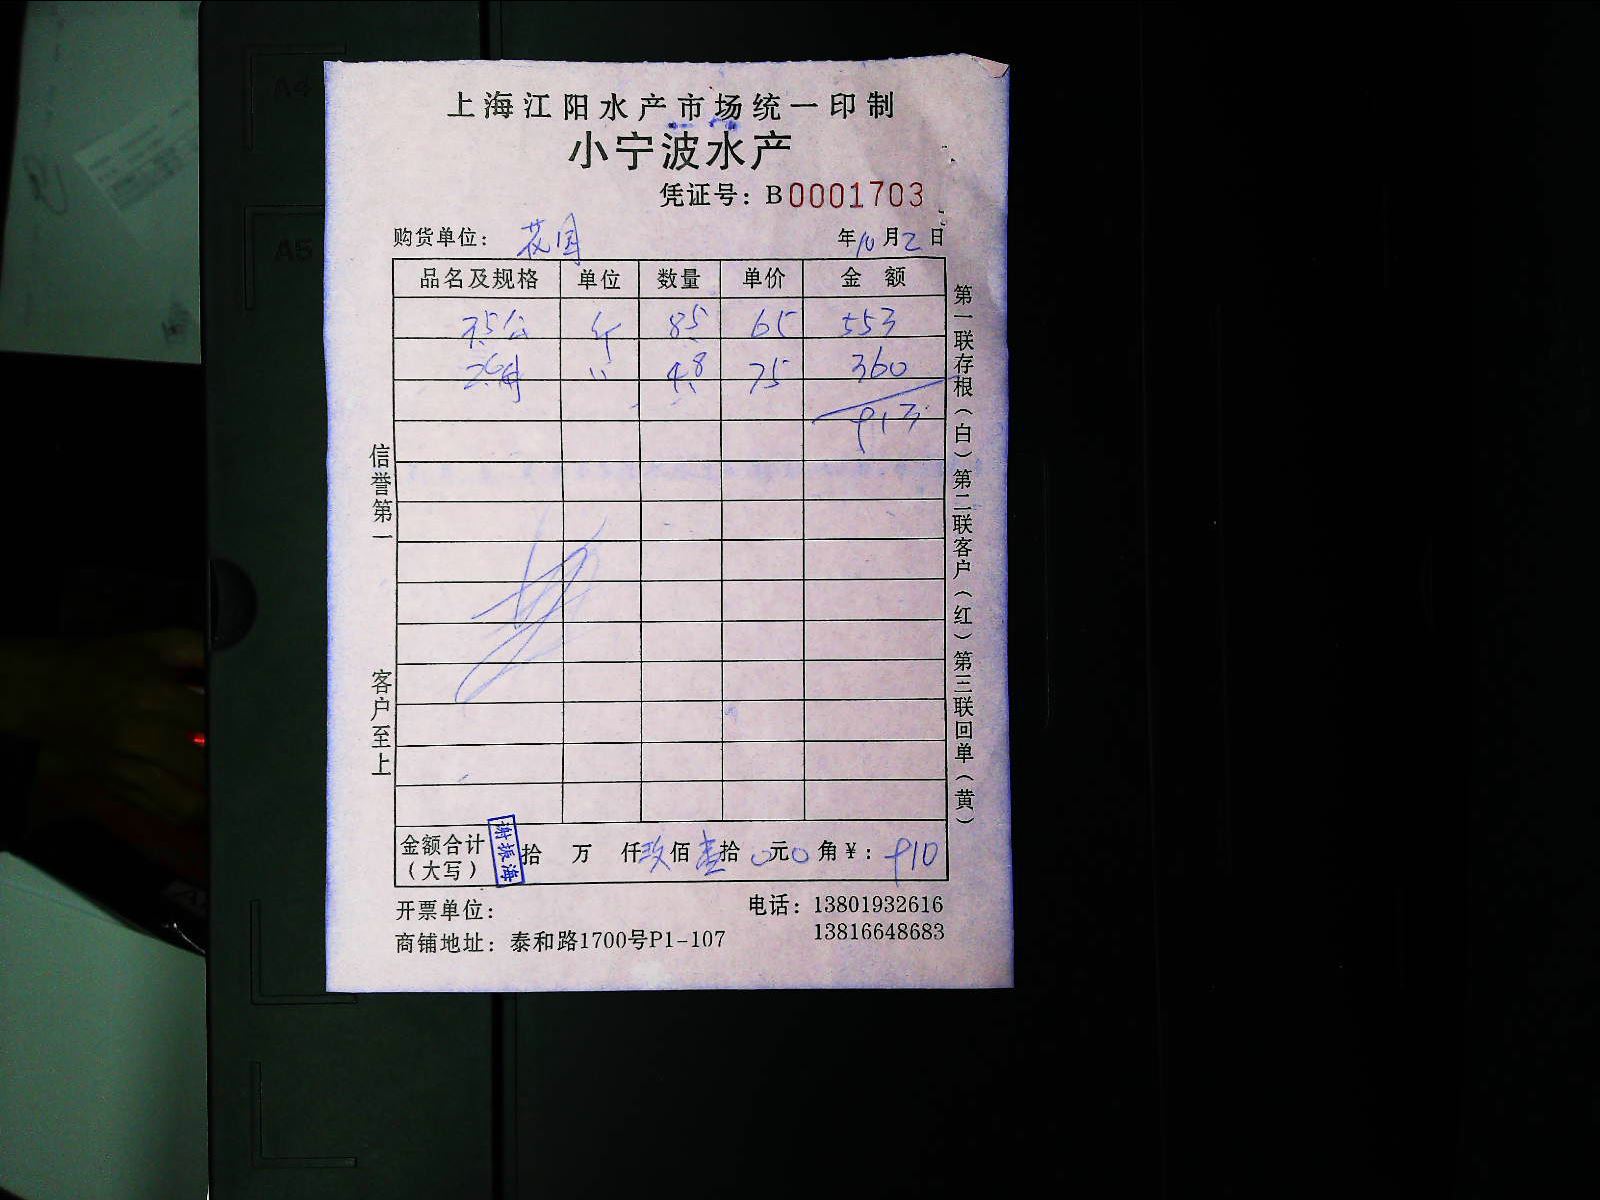 上海江阳水产市场统一印制
小宁波水产
凭证号：B0001703
购货单位：花園 年10月2日
品名及规格 单位 数量 单价 金 额
3.5公 斤 8.5 65 553
2.6 〃 4.8 75 360
913
信誉第一
客户至上
第一联存根（白）第二联客户（红）第三联回单（黄）
金额合计（大写） 拾 万 仟玖佰壹拾0元0角￥：910
谢振海
开票单位：
电话：13801932616
13816648683
商铺地址：泰和路1700号P1-107
A4
A5